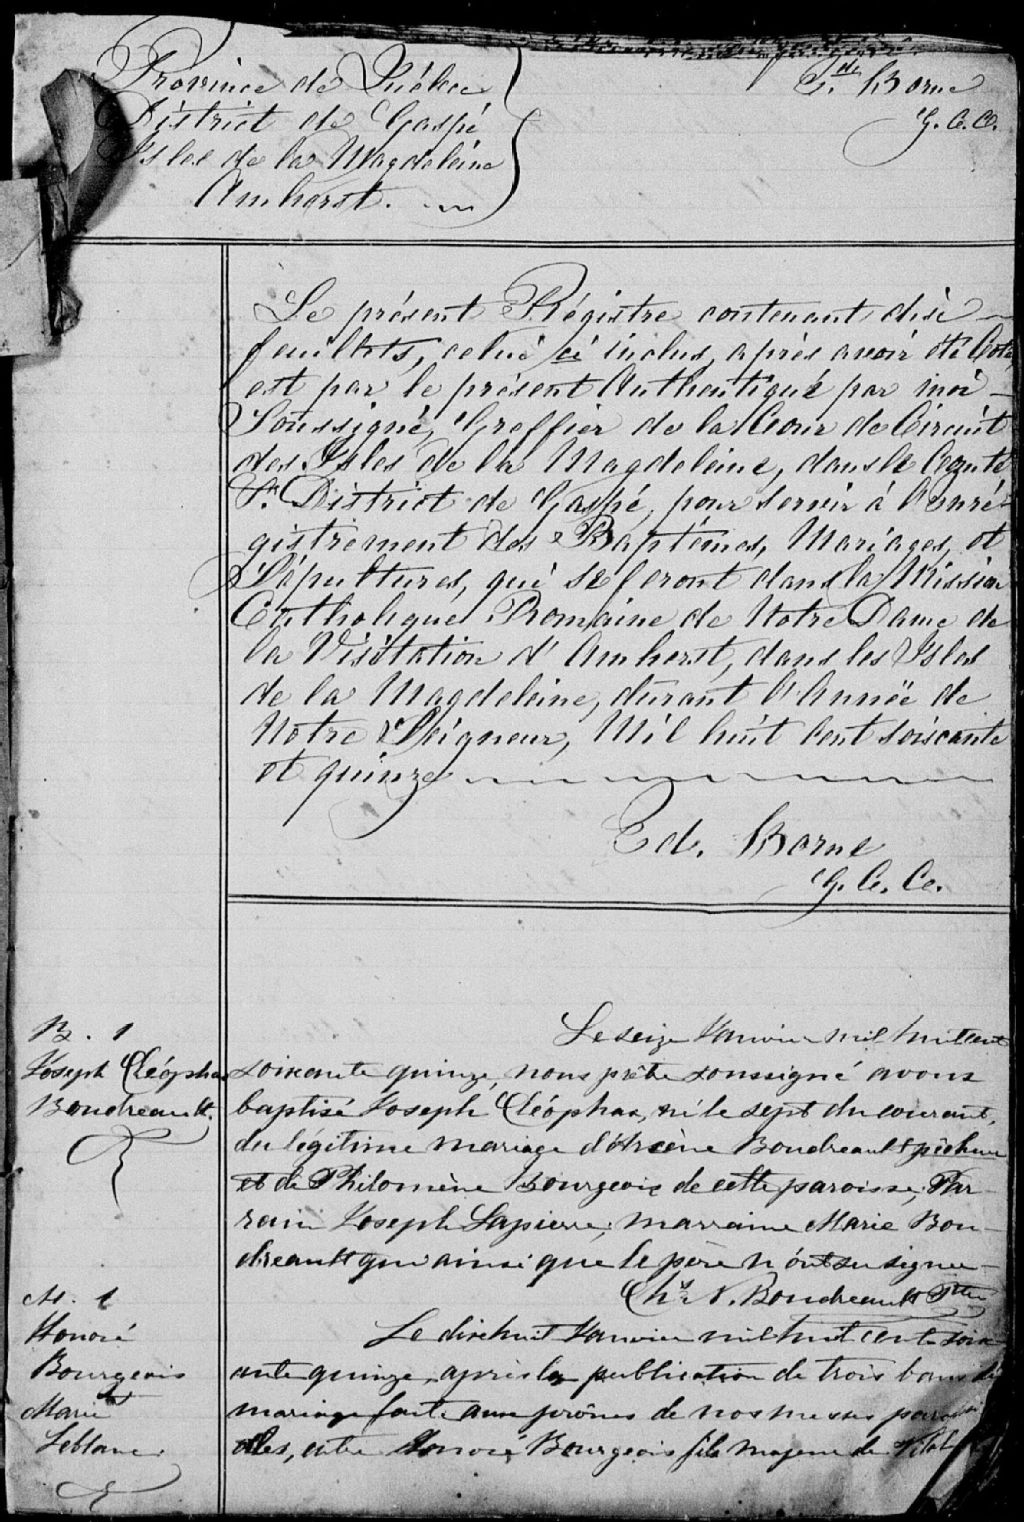 Province de Québec
District de Gaspé
Isles de la Magdeleine
Amherst.
Ed. Borne
G. C. C.
Le présent Régistre contenant dixi
feuillets, celui ci inclus, après avoir été Coté,
est par le présent Authentiqué par moi
Soussigné, Greffier de la Cour de Circuit
des Isles de la Magdeleine, dans le Comté
& District de Gaspé, pour servir à l'enré-
gistrement des Baptêmes, Mariages, et
Sépultures, qui se feront dans la Mission
Catholique Romaine de Notre Dame de
la Visitation d'Amherst, dans les Isles
de la Magdeleine, durant l'Année de
Notre Seigneur, Mil huit Cent soixante
et quinze
Ed. Borne
G. C. C.
B. 1
Joseph Cléophas
Boudreault.
Le seize Janvier mil huit cent
soixante quinze, nous prêtre soussigné avons
baptisé Joseph Cléophas, né le sept du courant,
du légitime mariage d'Arsène Boudreault pêcheur
et de Philomène Bourgeois de cette paroisse; Par-
rain Joseph Lapierre; marraine Marie Bou-
dreault qui ainsi que le père n'ont su signer
Chs. N. Boudreault Ptre
M. 1
Honoré
Bourgeois
&
Marie
Leblanc.
Le dixhuit Janvier mil huit cent soix-
ante quinze, après la publication de trois bans de
mariage faite aux prônes de nos messes paroissi
elles, entre Honoré Bourgeois fils majeur de